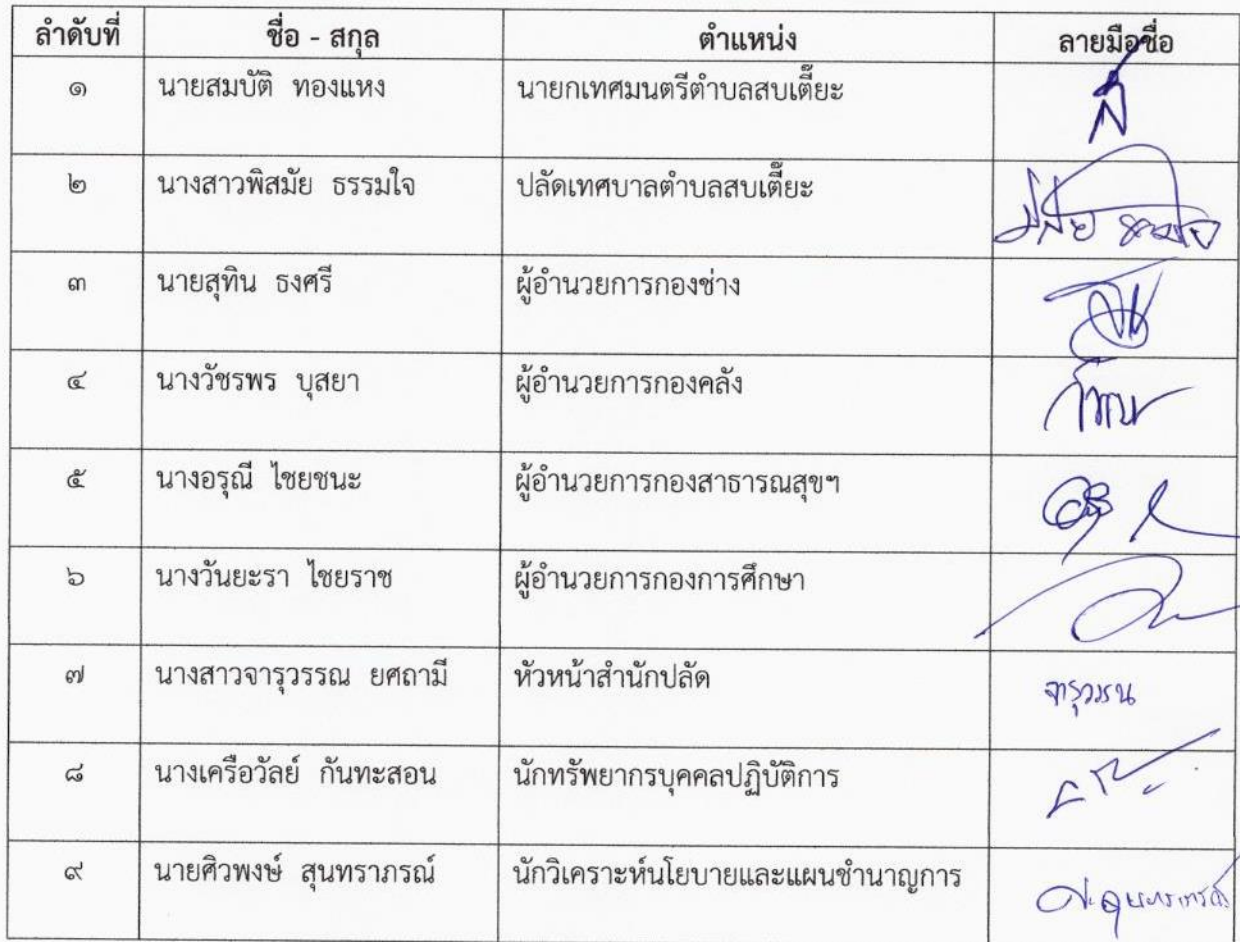 ลำดับที่ ชื่อ - สกุล ตำแหน่ง ลายมือชื่อ
๑ นายสมบัติ ทองแหง นายกเทศมนตรีตำบลสบเตี๊ยะ
๒ นางสาวพิสมัย ธรรมใจ ปลัดเทศบาลตำบลสบเตี๊ยะ
๓ นายสุทิน ธงศรี ผู้อำนวยการกองช่าง
๔ นางวัชรพร บุสยา ผู้อำนวยการกองคลัง
๕ นางอรุณี ไชยชนะ ผู้อำนวยการกองสาธารณสุขฯ
๖ นางวันยะรา ไชยราช ผู้อำนวยการกองการศึกษา
๗ นางสาวจารุวรรณ ยศถามี หัวหน้าสำนักปลัด
๘ นางเครือวัลย์ กันทะสอน นักทรัพยากรบุคคลปฏิบัติการ
๙ นายศิวพงษ์ สุนทราภรณ์ นักวิเคราะห์นโยบายและแผนชำนาญการ